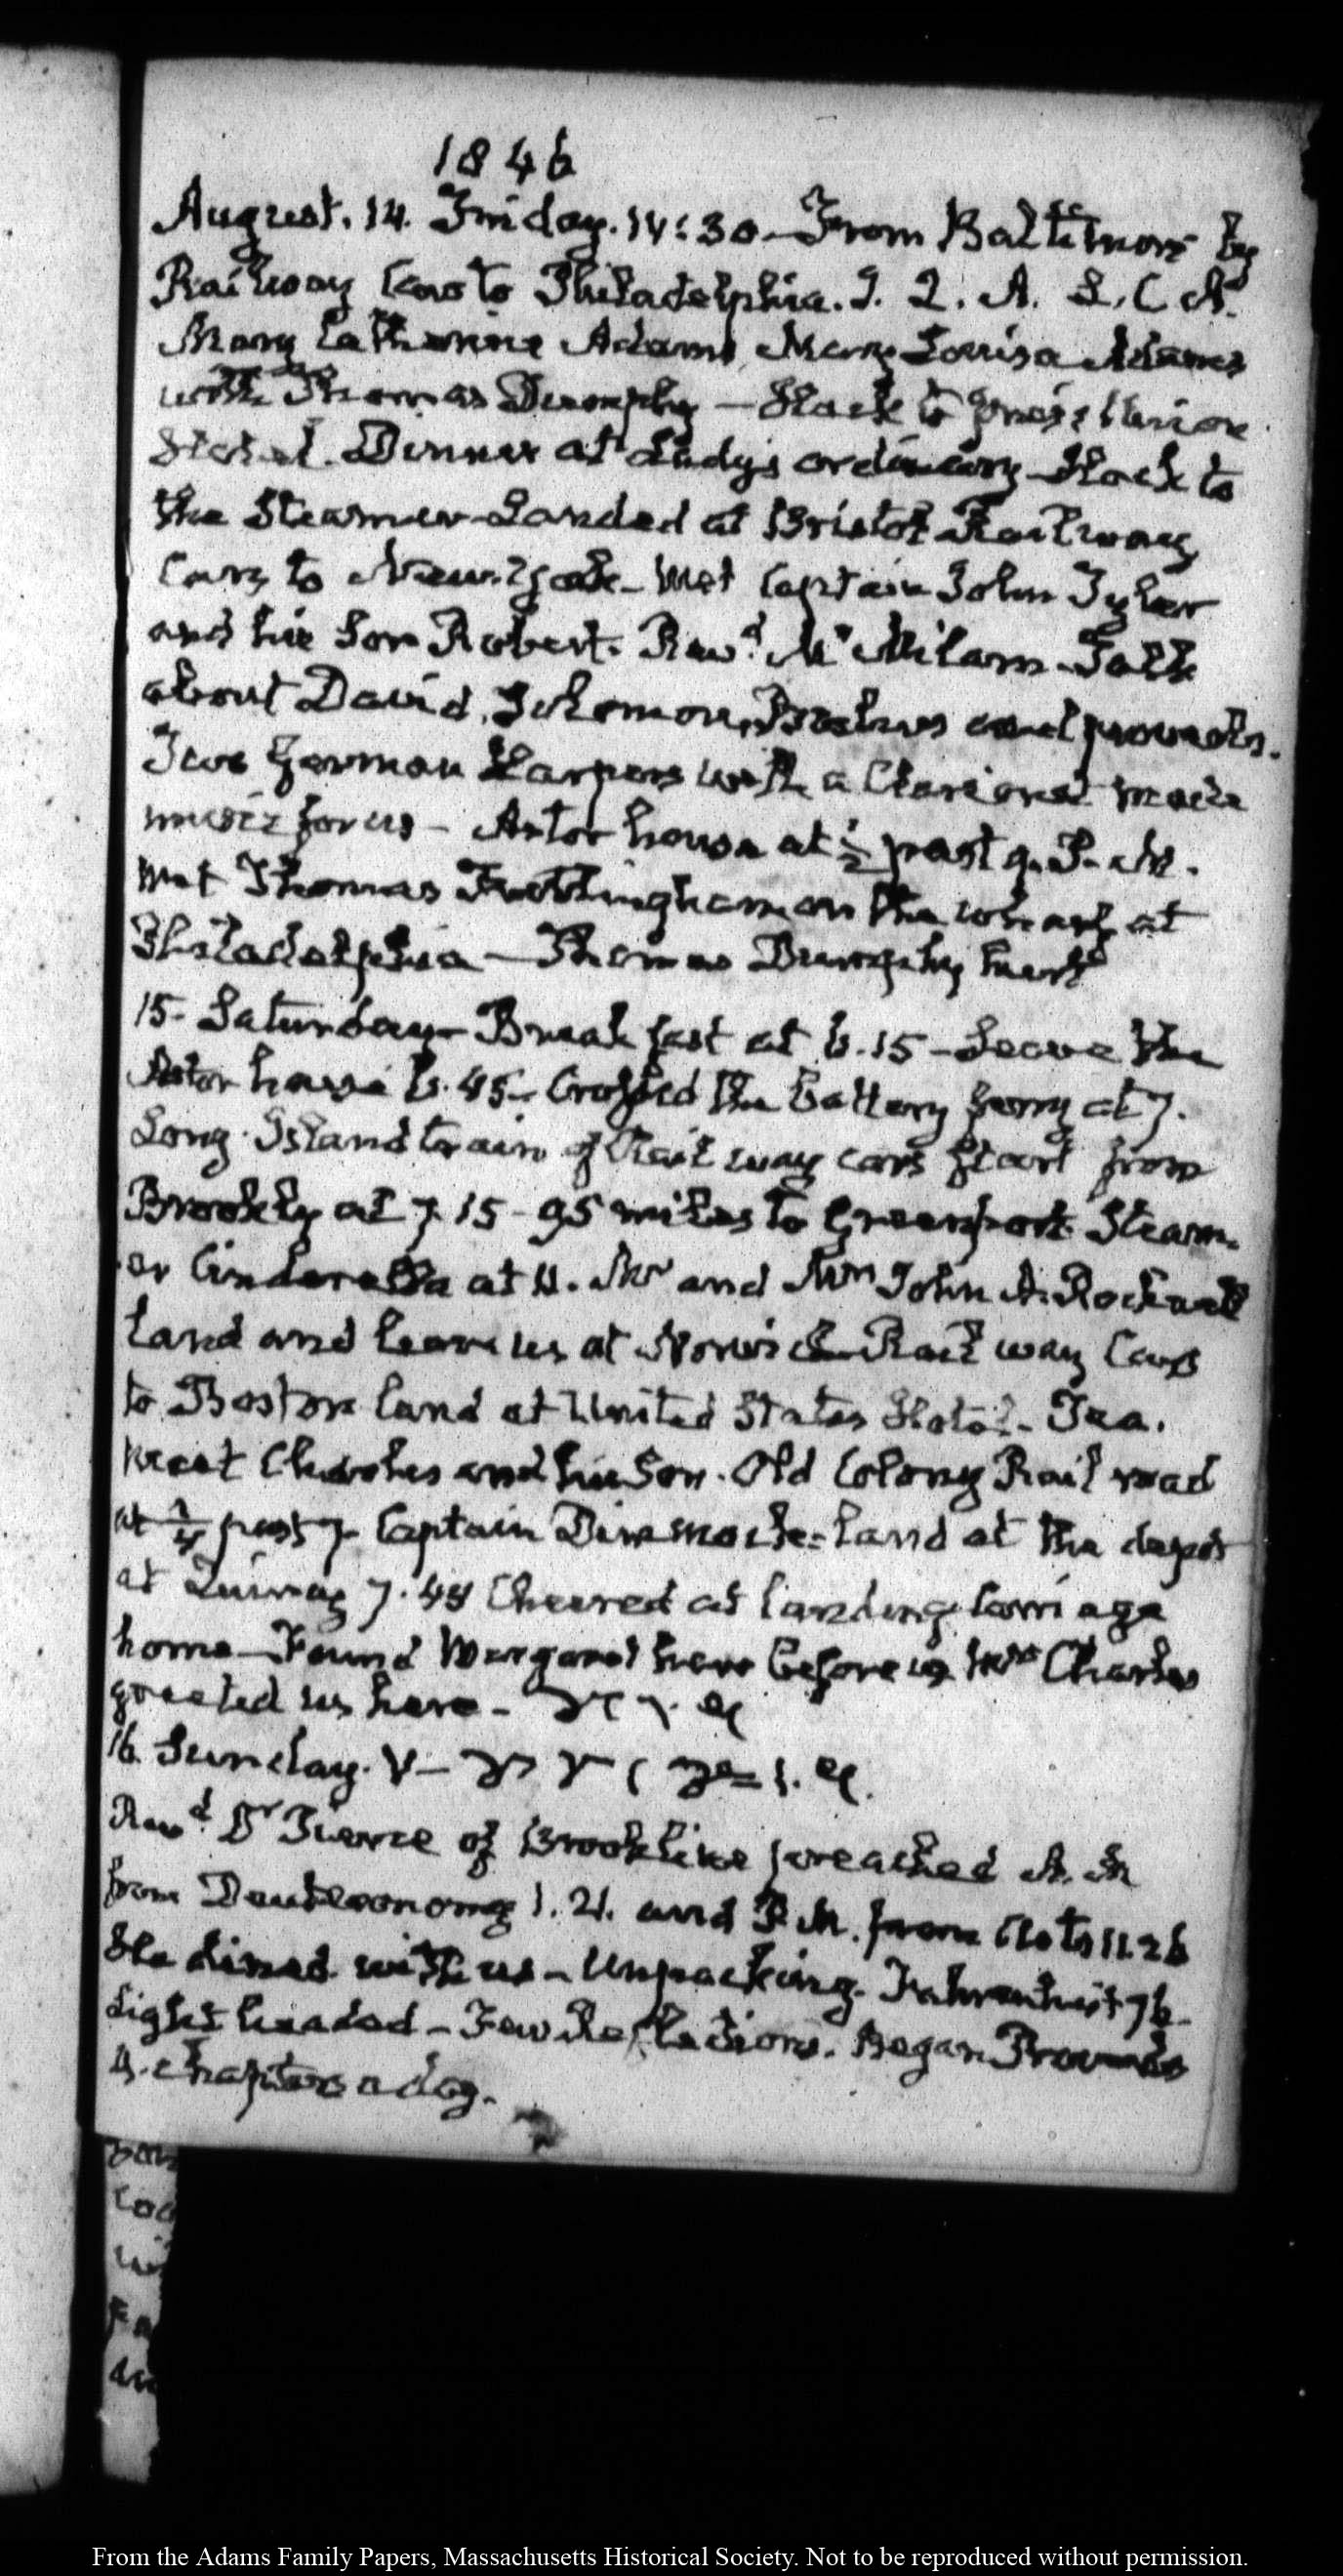 1846
August. 14. Friday. IV:30 - From Baltimore by
Railway Cars to Philadelphia. J. Q. A. L. C A.
Mary Catherine Adams, Mary Louisa Adams
with Thomas Dumphy - Hack to Union
Hotel. Dinner at Lady's ordinary - Hack to
the Steamer - Landed at Bristol Railway
Cars to New-York - Met Captain John Tyler
and his Son Robert. Revd. Mr Milam - Talk
about David, Solomon, Psalms and proverbs.
Two German Harpers with a Clarionet made
music for us - Astor house at ½ past 9. P. M.
met Thomas Frothingham on the wharf at
Philadelphia - Thomas Dumphy hurt
15. Saturday - Breakfast at 6.15 - Leave the
Astor house 6.45. Crossed the Battery ferry at 7.
Long Island train of Railway cars start from
Brookly at 7. 15 - 95 miles to Greenport. Steam-
er Cinderella at 11. Mr and Mrs John A. Rockwell
land and leave us at Norwich - Railway Cars
to Boston land at United States Hotel - Tea.
meet Charles and his Son. Old Colony Rail road
at ¼ past 7. Captain Dimmock - land at the depot
at Quincy 7.44 Cheered at landing. Carriage
home - Found Margaret here before us Mrs Charles
greeted us here -
16. Sunday. V -
Revd. Dr Pierce of Brookline preached A. M
from Deuteronomy 1. 21. and P. M. from Acts 11. 26
He dined with us - Unpacking. Fahrenheit 76
Light headed - Few Reflections. Began Proverbs
4. chapters a day.
From the Adams Family Papers, Massachusetts Historical Society. Not to be reproduced without permission.